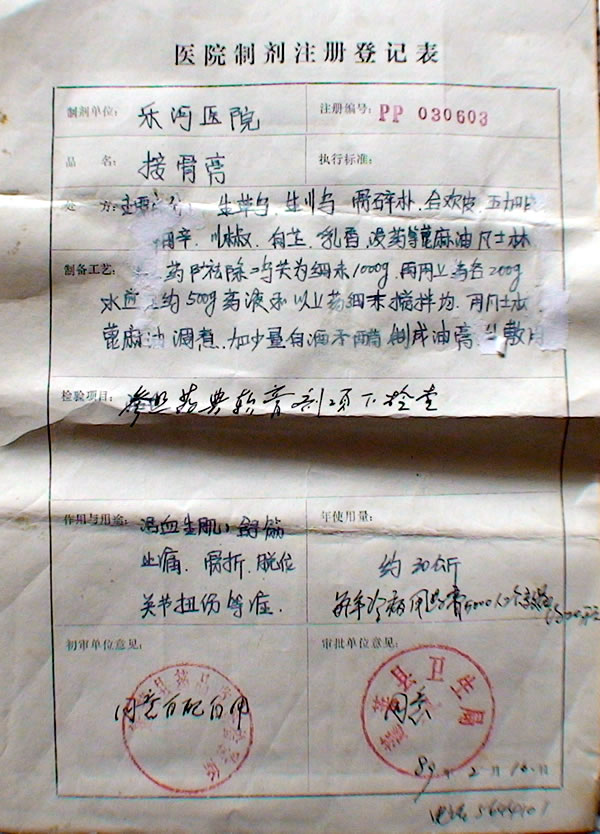 医院制剂注册登记表
制剂单位: 乐河医院 注册编号: PP 030603
品 名: 接骨膏 执行标准:
处 方: 生草乌、生川乌、骨碎补、合欢皮、五加皮
细辛、川椒、白芷、乳香、没药等蓖麻油凡士林
制备工艺: 药 除二乌共为细末1000g, 两用二乌各200g
水煎 约500g药液和以上药细末搅拌均, 用凡士林
蓖麻油调煮, 加少量白酒和醋制成油膏 敷用
检验项目: 参照药典软膏剂项下检查
作用与用途: 活血生肌, 舒筋
止痛、骨折、脱位
关节扭伤等症.
年使用量:
约30公斤
初审单位意见:
同意自配自用
审批单位意见:
县卫生局
同意
89年2月16日
电话 5644101